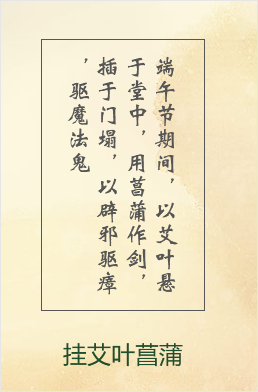 端午节期间，以艾叶悬
于堂中，用菖蒲作剑，
插于门塌，以辟邪驱瘴
，驱魔法鬼
挂艾叶菖蒲